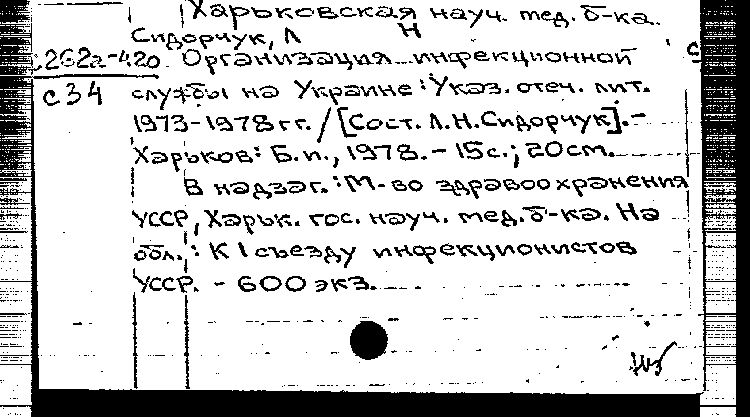 Харьковская науч. мед. б-ка.
Сидорчук, Л Н
с262а-420 Организация инфекционной
с34 службы на Украине : Указ. отеч. лит.
1973-1978 гг. / [Сост. Л.Н.Сидорчук].-
Харьков: Б.и., 1978. - 15с.; 20см.
В надзаг.: М-во здравоохранения
УССР, Харьк. гос. науч. мед. б-ка. На
обл. : К I съезду инфекционистов
УССР. - 600 экз.